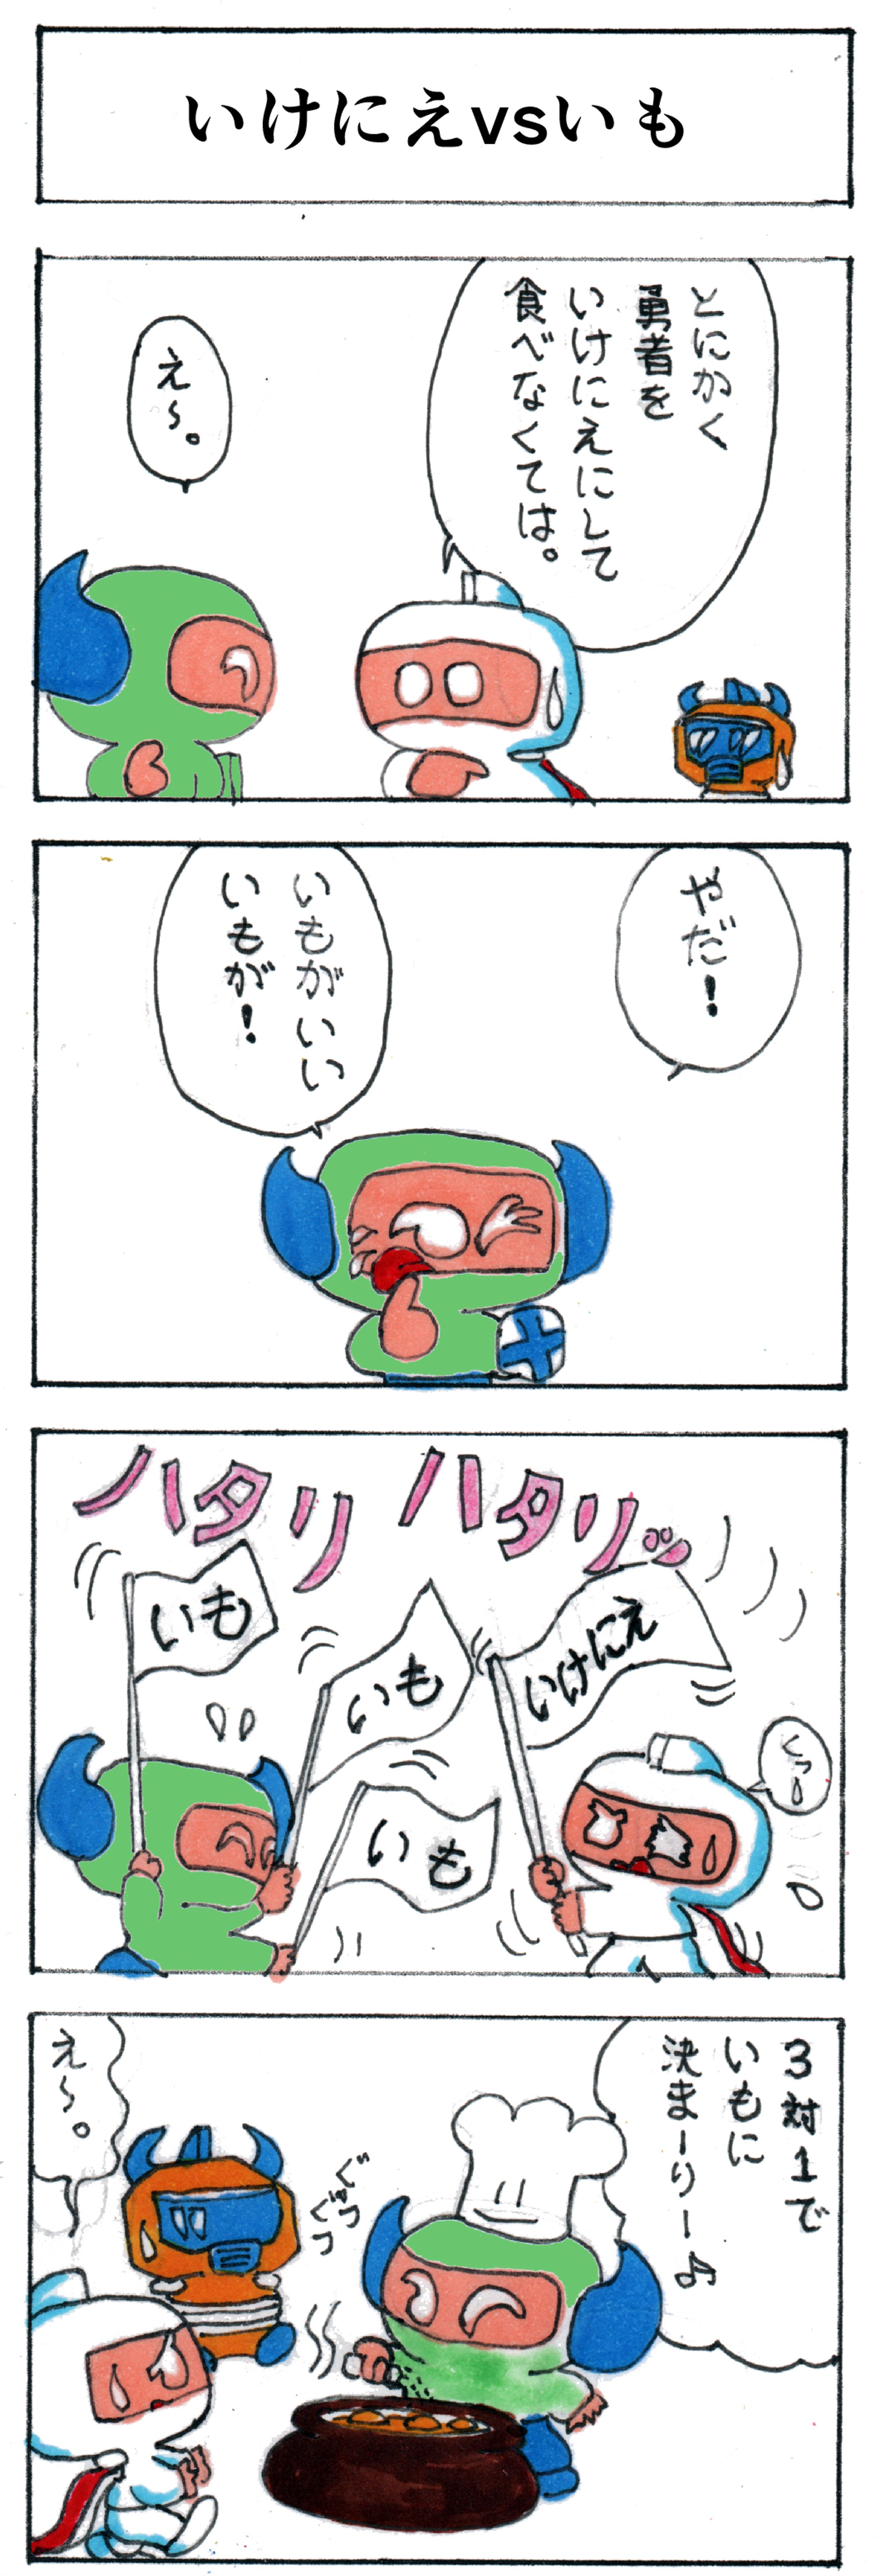 いけにえvsいも
とにかく
勇者を
いけにえにして
食べなくては。
え〜。
やだ！
いもがいい
いもが！
ハタリ ハタリッ
いも
いも
いも
いけにえ
くっ
3対1で
いもに
決まーりー♪
ぐつ
ぐつ
え〜。